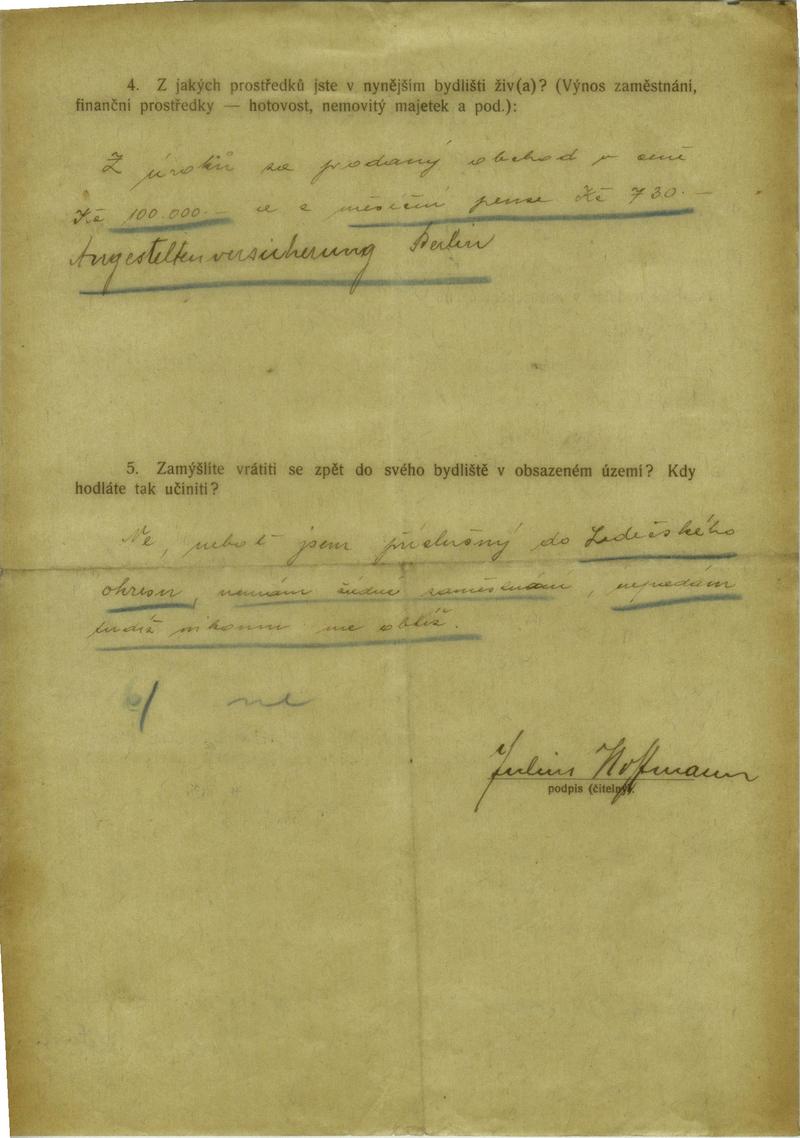 4. Z jakých prostředků jste v nynějším bydlišti živ(a)? (Výnos zaměstnání,
finanční prostředky — hotovost, nemovitý majetek a pod.):
Z úroků za prodaný obchod v ceně
Kč 100.000.— a z měsíční pense Kč 730.—
Angestelltenversicherung Berlin
5. Zamýšlíte vrátiti se zpět do svého bydliště v obsazeném území? Kdy
hodláte tak učiniti?
Ne, neboť jsem příslušný do Ledečského
okresu, nemám žádné zaměstnání, nepadám
tudíž nikomu na obtíž.
ne
Julius Hoffmann
podpis (čitelný).